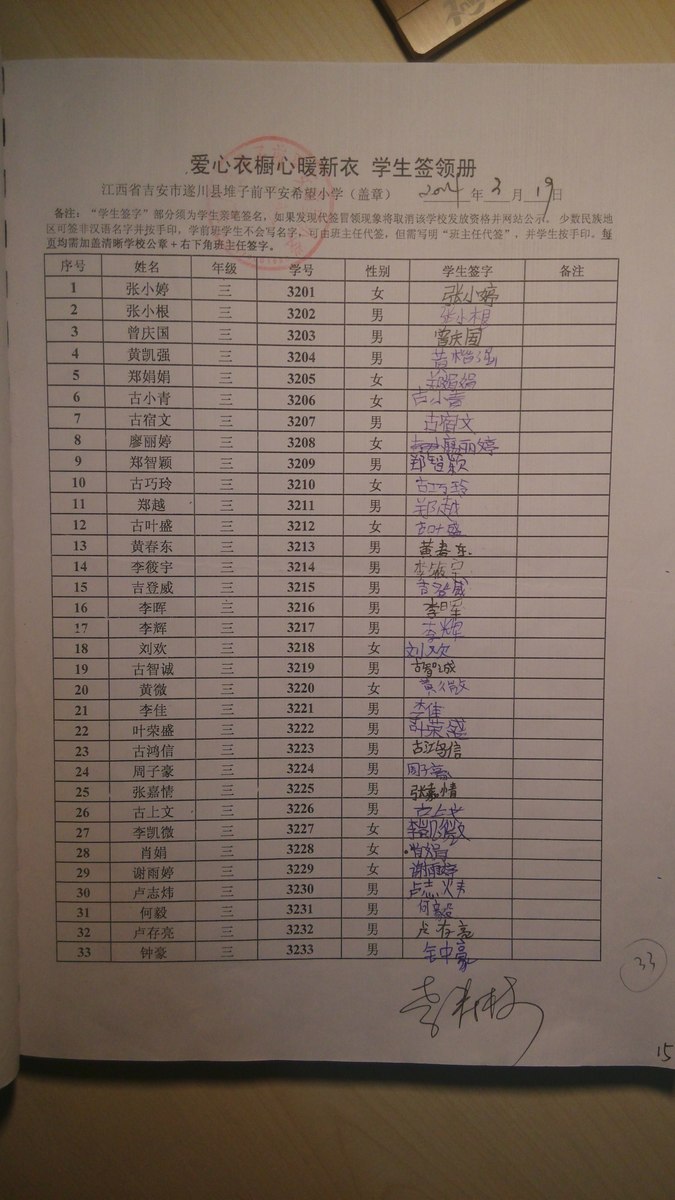 爱心衣橱心暖新衣 学生签领册
江西省吉安市遂川县堆子前平安希望小学（盖章） 2014 年 3 月 19 日
备注：“学生签字”部分须为学生亲笔签名，如果发现代签冒领现象将取消该学校发放资格并网站公示。少数民族地
区可签非汉语名字并按手印，学前班学生不会写名字，可由班主任代签，但需写明“班主任代签”，并学生按手印。每
页均需加盖清晰学校公章+右下角班主任签字。
序号 姓名 年级 学号 性别 学生签字 备注
1 张小婷 三 3201 女 张小婷
2 张小根 三 3202 男 张小根
3 曾庆国 三 3203 男 曾庆国
4 黄凯强 三 3204 男 黄楷强
5 郑娟娟 三 3205 女 郑娟娟
6 古小青 三 3206 女 古小青
7 古宿文 三 3207 男 古宿文
8 廖丽婷 三 3208 女 廖丽婷
9 郑智颖 三 3209 男 郑智颖
10 古巧玲 三 3210 女 古巧玲
11 郑越 三 3211 男 郑越
12 古叶盛 三 3212 女 古叶盛
13 黄春东 三 3213 男 黄春东
14 李筱宇 三 3214 男 李筱宇
15 吉登威 三 3215 男 吉登威
16 李晖 三 3216 男 李晖
17 李辉 三 3217 男 李辉
18 刘欢 三 3218 女 刘欢
19 古智诚 三 3219 男 古智诚
20 黄微 三 3220 女 黄微
21 李佳 三 3221 男 李佳
22 叶荣盛 三 3222 男 叶荣盛
23 古鸿信 三 3223 男 古鸿信
24 周子豪 三 3224 男 周子豪
25 张嘉情 三 3225 男 张嘉情
26 古上文 三 3226 男 古上文
27 李凯微 三 3227 女 李凯微
28 肖娟 三 3228 女 肖娟
29 谢雨婷 三 3229 女 谢雨婷
30 卢志炜 三 3230 男 卢志炜
31 何毅 三 3231 男 何毅
32 卢存亮 三 3232 男 卢存亮
33 钟豪 三 3233 男 钟豪
33
15